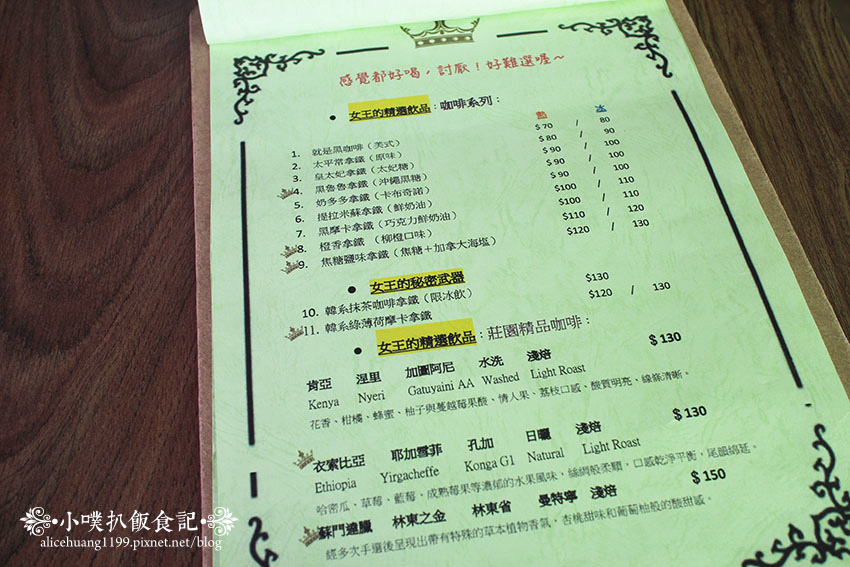 感覺都好喝，討厭！好難選喔～
女王的精選飲品：咖啡系列：
熱 冰
1. 就是黑咖啡（美式） $70 / 80
2. 太平常拿鐵（原味） $80 / 90
3. 皇太妃拿鐵（太妃糖） $90 / 100
4. 黑魯魯拿鐵（沖繩黑糖） $90 / 100
5. 奶多多拿鐵（卡布奇諾） $90 / 100
6. 提拉米蘇拿鐵（鮮奶油） $100 / 110
7. 黑摩卡拿鐵（巧克力鮮奶油） $100 / 110
8. 橙香拿鐵 （柳橙口味） $110 / 120
9. 焦糖鹽味拿鐵（焦糖＋加拿大海塩） $120 / 130
女王的秘密武器
10. 韓系抹茶咖啡拿鐵（限冰飲） $130
11. 韓系綠薄荷摩卡拿鐵 $120 / 130
女王的精選飲品：莊園精品咖啡：
肯亞 涅里 加圖阿尼 水洗 淺焙 $130
Kenya Nyeri Gatuyaini AA Washed Light Roast
花香、柑橘、蜂蜜、柚子與蔓越莓果酸、情人果、荔枝口感、酸質明亮、線條清晰。
衣索比亞 耶加雪菲 孔加 日曬 淺焙 $130
Ethiopia Yirgacheffe Konga G1 Natural Light Roast
哈密瓜、草莓、藍莓、成熟莓果等濃郁的水果風味，絲綢般柔順，口感乾淨平衡，尾韻綿延。
蘇門達臘 林東之金 林東省 曼特寧 淺焙 $150
經多次手選後呈現出帶有特殊的草本植物香氣，杏桃甜味和葡萄柚般的酸甜感。
小噗扒飯食記
alicehuang1199.pixnet.net/blog